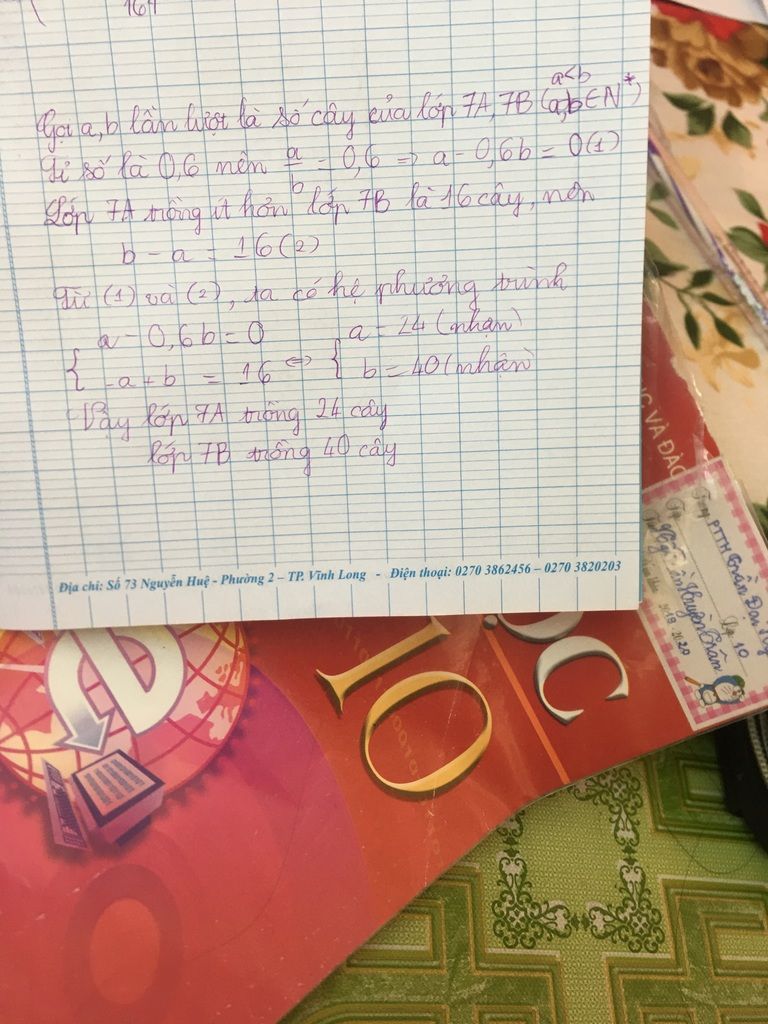 164
a<b
Gọi a, b lần lượt là số cây của lớp 7A, 7B (a,b ∈ N*)
Tỉ số là 0,6 nên a/b = 0,6 => a - 0,6b = 0 (1)
Lớp 7A trồng ít hơn lớp 7B là 16 cây, nên
b - a = 16 (2)
Từ (1) và (2), ta có hệ phương trình
{ a - 0,6b = 0 <=> { a = 24 (nhận)
-a + b = 16 b = 40 (nhận)
Vậy lớp 7A trồng 24 cây
lớp 7B trồng 40 cây
Địa chỉ: Số 73 Nguyễn Huệ - Phường 2 – TP. Vĩnh Long - Điện thoại: 0270 3862456 – 0270 3820203
VÀ ĐÀO
PTTH Trần Đại
Lớp 10
Huyền Trân
2019 2020
10
ỌC